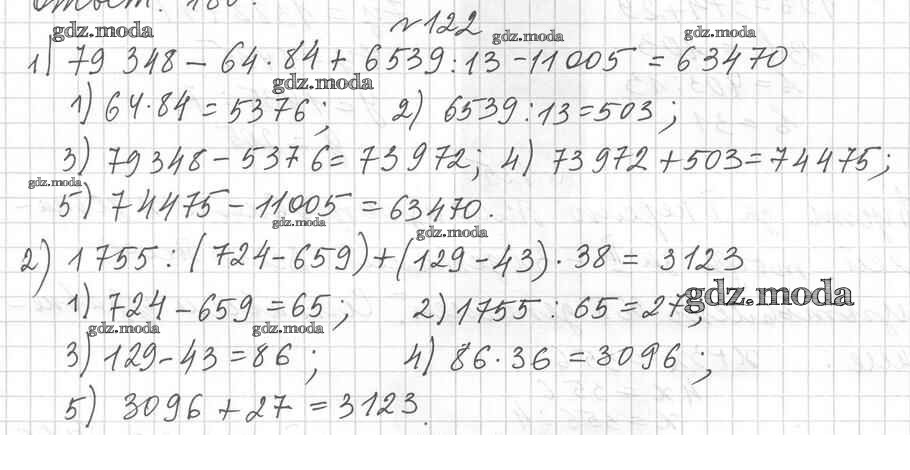 Ответ: 180.
gdz.moda
№122
gdz.moda
gdz.moda
1) 79 348 - 64 · 84 + 6539 : 13 - 11005 = 63470
gdz.moda
1) 64 · 84 = 5376; 2) 6539 : 13 = 503;
3) 79348 - 5376 = 73972; 4) 73972 + 503 = 74475;
gdz.moda
5) 74475 - 11005 = 63470.
gdz.moda
gdz.moda
2) 1755 : (724 - 659) + (129 - 43) · 38 = 3123
gdz.moda
1) 724 - 659 = 65; 2) 1755 : 65 = 27;
gdz.moda
gdz.moda
3) 129 - 43 = 86; 4) 86 · 36 = 3096;
5) 3096 + 27 = 3123.